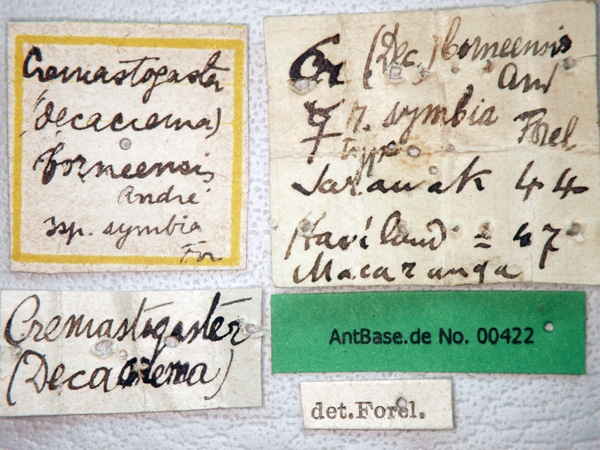 Cremastogaster
(Decacrema)
borneensis
André
ssp. symbia
For
Cr (Dec.) borneensis
And
☿ r. symbia Forel
type
Sarawak 44
Haviland = 47
Macaranga
Cremastogaster
(Decacrema)
AntBase.de No. 00422
det.Forel.